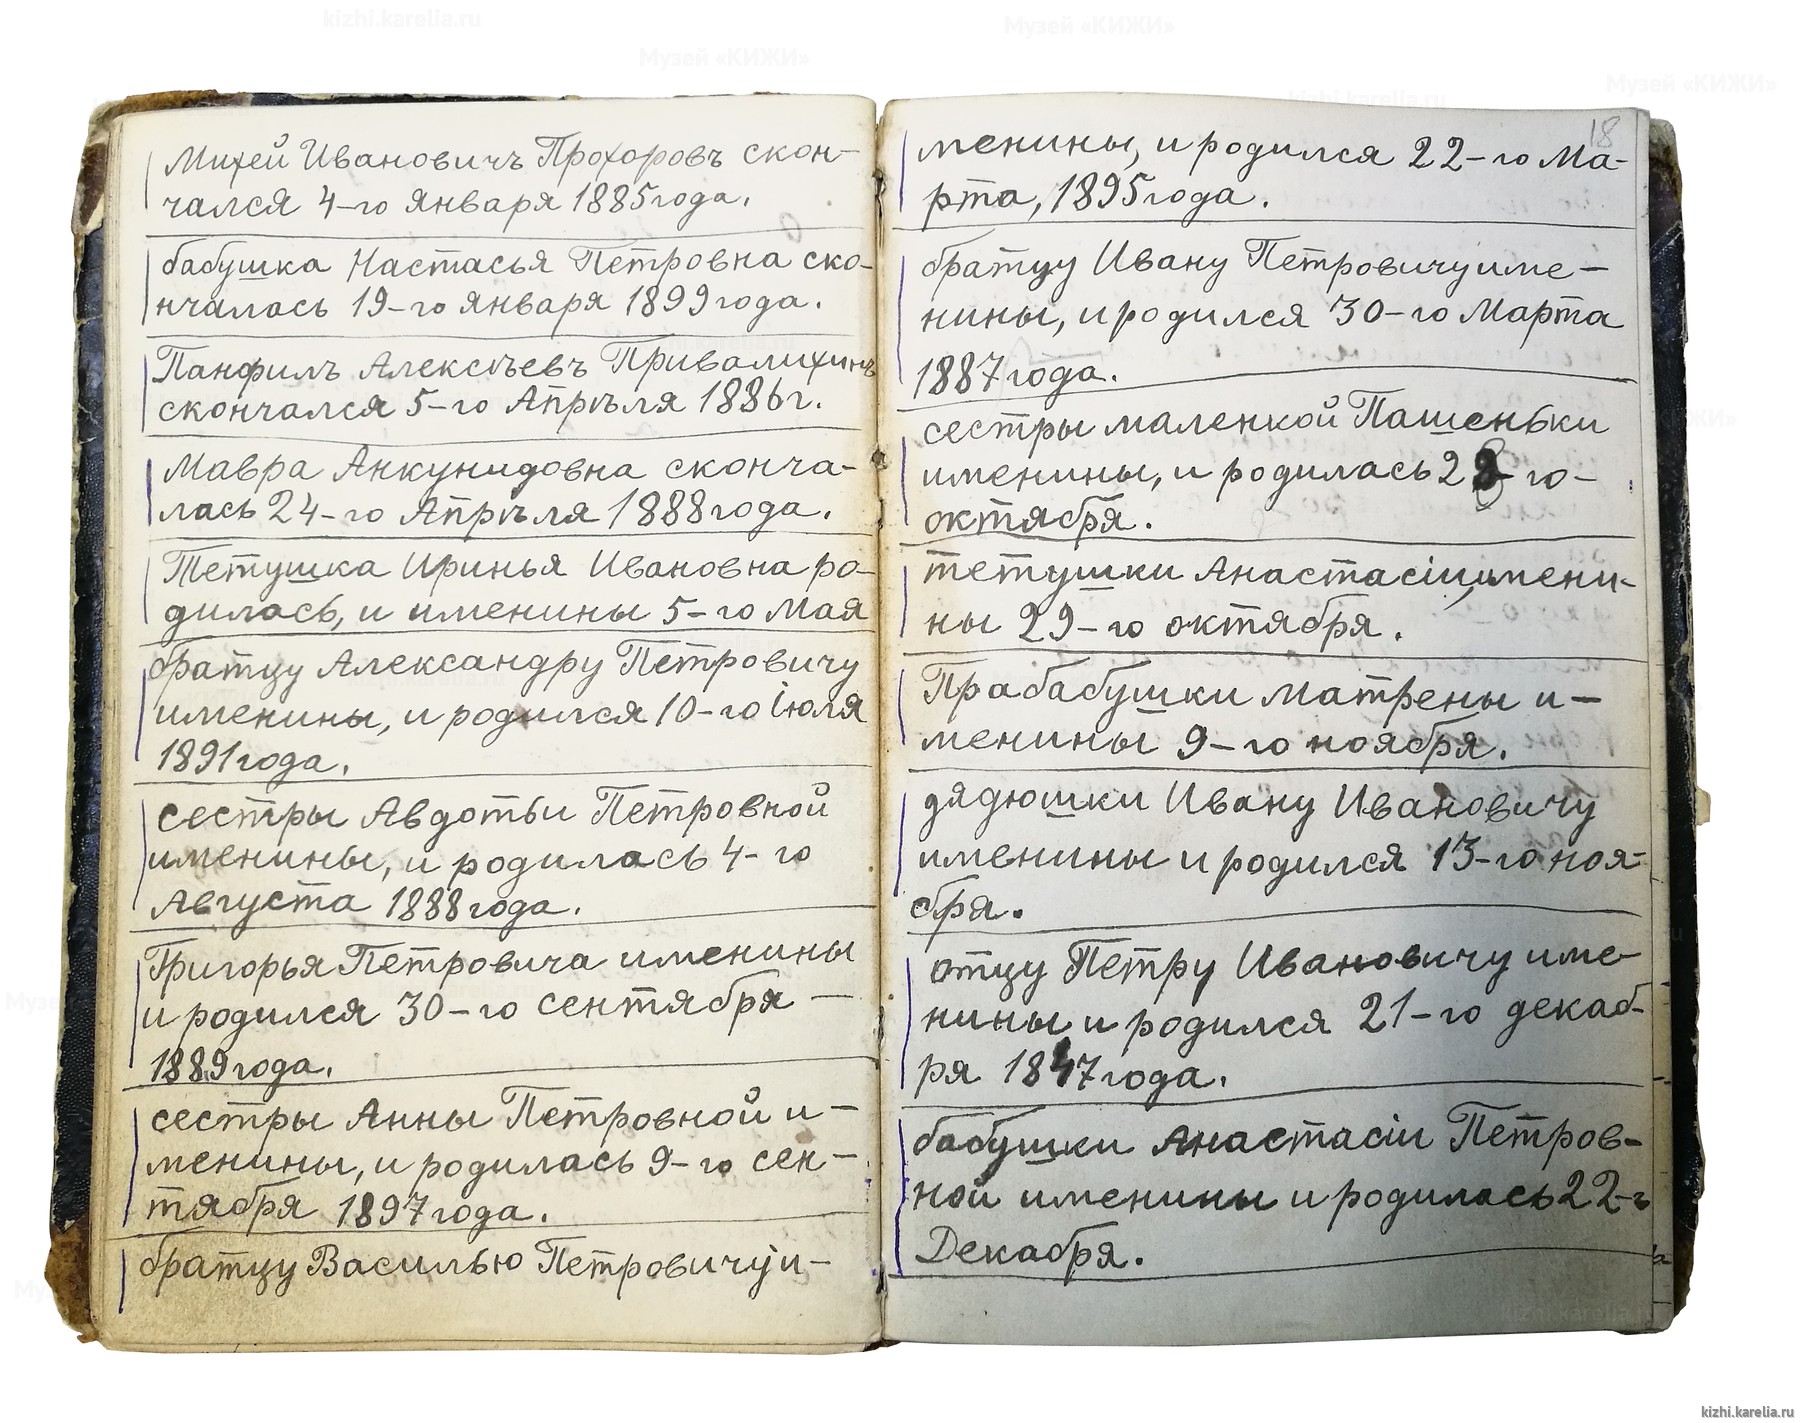 Михей Ивановичъ Прохоровъ скон-
чался 4-го января 1885 года.
бабушка Настасья Петровна ско-
нчалась 19-го января 1899 года.
Панфилъ Алексѣевъ Привалихинъ
скончался 5-го Апрѣля 1886 г.
Мавра Анкунидовна сконча-
лась 24-го Апрѣля 1888 года.
Тетушка Иринья Ивановна ро-
дилась, и именины 5-го Мая
братцу Александру Петровичу
именины, и родился 10-го Іюля
1891 года.
сестры Авдотьи Петровной
именины, и родилась 4-го
Августа 1888 года.
Григорья Петровича именины
и родился 30-го сентября —
1889 года.
сестры Анны Петровной и-
менины, и родилась 9-го сен-
тября 1897 года.
братцу Василью Петровичу и-
18
менины, и родился 22-го Ма-
рта, 1895 года.
братцу Ивану Петровичу име-
нины, и родился 30-го Марта
1887 года.
сестры маленкой Пашеньки
именины, и родилась 28 го-
октября.
тетушки Анастасіи, имени-
ны 29-го октября.
Прабабушки Матрены и-
менины 9-го ноября.
дядюшки Ивану Ивановичу
именины и родился 13-го ноя-
бря.
отцу Петру Ивановичу име-
нины и родился 21-го декаб-
ря 1847 года.
бабушки Анастасіи Петров-
ной именины и родилась 22-г
Декабря.
kizhi.karelia.ru